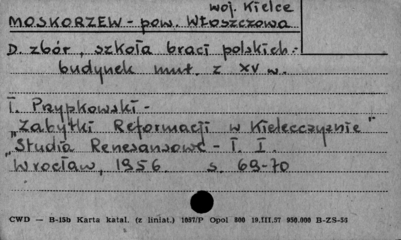 woj. Kielce
MOSKORZEW - pow. Włoszczowa
D. zbór, szkoła braci polskich -
budynek mur. z XV w.
T. Przypkowski -
"Zabytki Reformacji w Kielecczyźnie"
"Studia Renesansowe - T. I.
Wrocław, 1956. s. 69-70
CWD — B-15b Karta katal. (z liniat.) 1087/P Opol 800 19.III.57 950.000 B-ZS-50